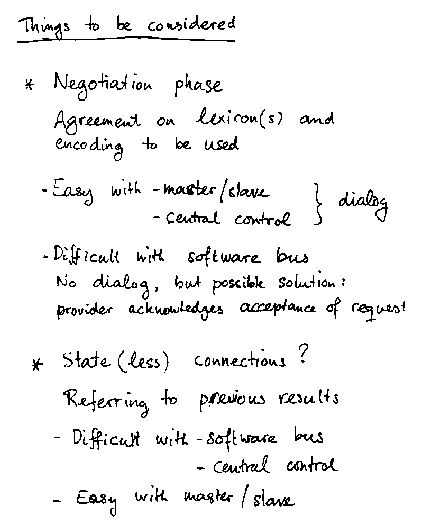 Things to be considered
* Negotiation phase
Agreement on lexicon(s) and
encoding to be used
- Easy with - master/slave
- central control } dialog
- Difficult with software bus
No dialog, but possible solution:
provider acknowledges acceptance of request
* State(less) connections?
Referring to previous results
- Difficult with - software bus
- central control
- Easy with master/slave